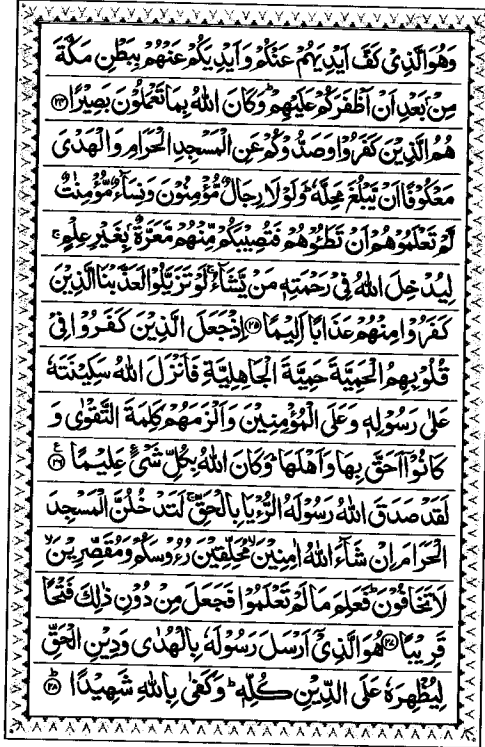 وَهُوَ الَّذِىْ كَفَّ اَيْدِيَهُمْ عَنْكُمْ وَاَيْدِيَكُمْ عَنْهُمْ بِبَطْنِ مَكَّةَ
مِنْۢ بَعْدِ اَنْ اَظْفَرَكُمْ عَلَيْهِمْ ؕ وَكَانَ اللّٰهُ بِمَا تَعْمَلُوْنَ بَصِيْرًا ﴿۲۴﴾
هُمُ الَّذِيْنَ كَفَرُوْا وَصَدُّوْكُمْ عَنِ الْمَسْجِدِ الْحَرَامِ وَالْهَدْىَ
مَعْكُوْفًا اَنْ يَّبْلُغَ مَحِلَّهٗ ؕ وَلَوْ لَا رِجَالٌ مُّؤْمِنُوْنَ وَنِسَآءٌ مُّؤْمِنٰتٌ
لَّمْ تَعْلَمُوْهُمْ اَنْ تَطَـُٔوْهُمْ فَتُصِيْبَكُمْ مِّنْهُمْ مَّعَرَّةٌۢ بِغَيْرِ عِلْمٍ ۚ
لِيُدْخِلَ اللّٰهُ فِىْ رَحْمَتِهٖ مَنْ يَّشَآءُ ۚ لَوْ تَزَيَّلُوْا لَعَذَّبْنَا الَّذِيْنَ
كَفَرُوْا مِنْهُمْ عَذَابًا اَلِيْمًا ﴿۲۵﴾ اِذْ جَعَلَ الَّذِيْنَ كَفَرُوْا فِىْ
قُلُوْبِهِمُ الْحَمِيَّةَ حَمِيَّةَ الْجَاهِلِيَّةِ فَاَنْزَلَ اللّٰهُ سَكِيْنَتَهٗ
عَلٰى رَسُوْلِهٖ وَعَلَى الْمُؤْمِنِيْنَ وَاَلْزَمَهُمْ كَلِمَةَ التَّقْوٰى وَ
كَانُوْۤا اَحَقَّ بِهَا وَاَهْلَهَا ؕ وَكَانَ اللّٰهُ بِكُلِّ شَىْءٍ عَلِيْمًا ﴿۲۶﴾ ع
لَقَدْ صَدَقَ اللّٰهُ رَسُوْلَهُ الرُّءْيَا بِالْحَقِّ ۚ لَتَدْخُلُنَّ الْمَسْجِدَ
الْحَرَامَ اِنْ شَآءَ اللّٰهُ اٰمِنِيْنَ ۙ مُحَلِّقِيْنَ رُءُوْسَكُمْ وَمُقَصِّرِيْنَ ۙ
لَا تَخَافُوْنَ ؕ فَعَلِمَ مَا لَمْ تَعْلَمُوْا فَجَعَلَ مِنْ دُوْنِ ذٰلِكَ فَتْحًا
قَرِيْبًا ﴿۲۷﴾ هُوَ الَّذِىْۤ اَرْسَلَ رَسُوْلَهٗ بِالْهُدٰى وَدِيْنِ الْحَقِّ
لِيُظْهِرَهٗ عَلَى الدِّيْنِ كُلِّهٖ ؕ وَكَفٰى بِاللّٰهِ شَهِيْدًا ﴿۲۸﴾ ؕ